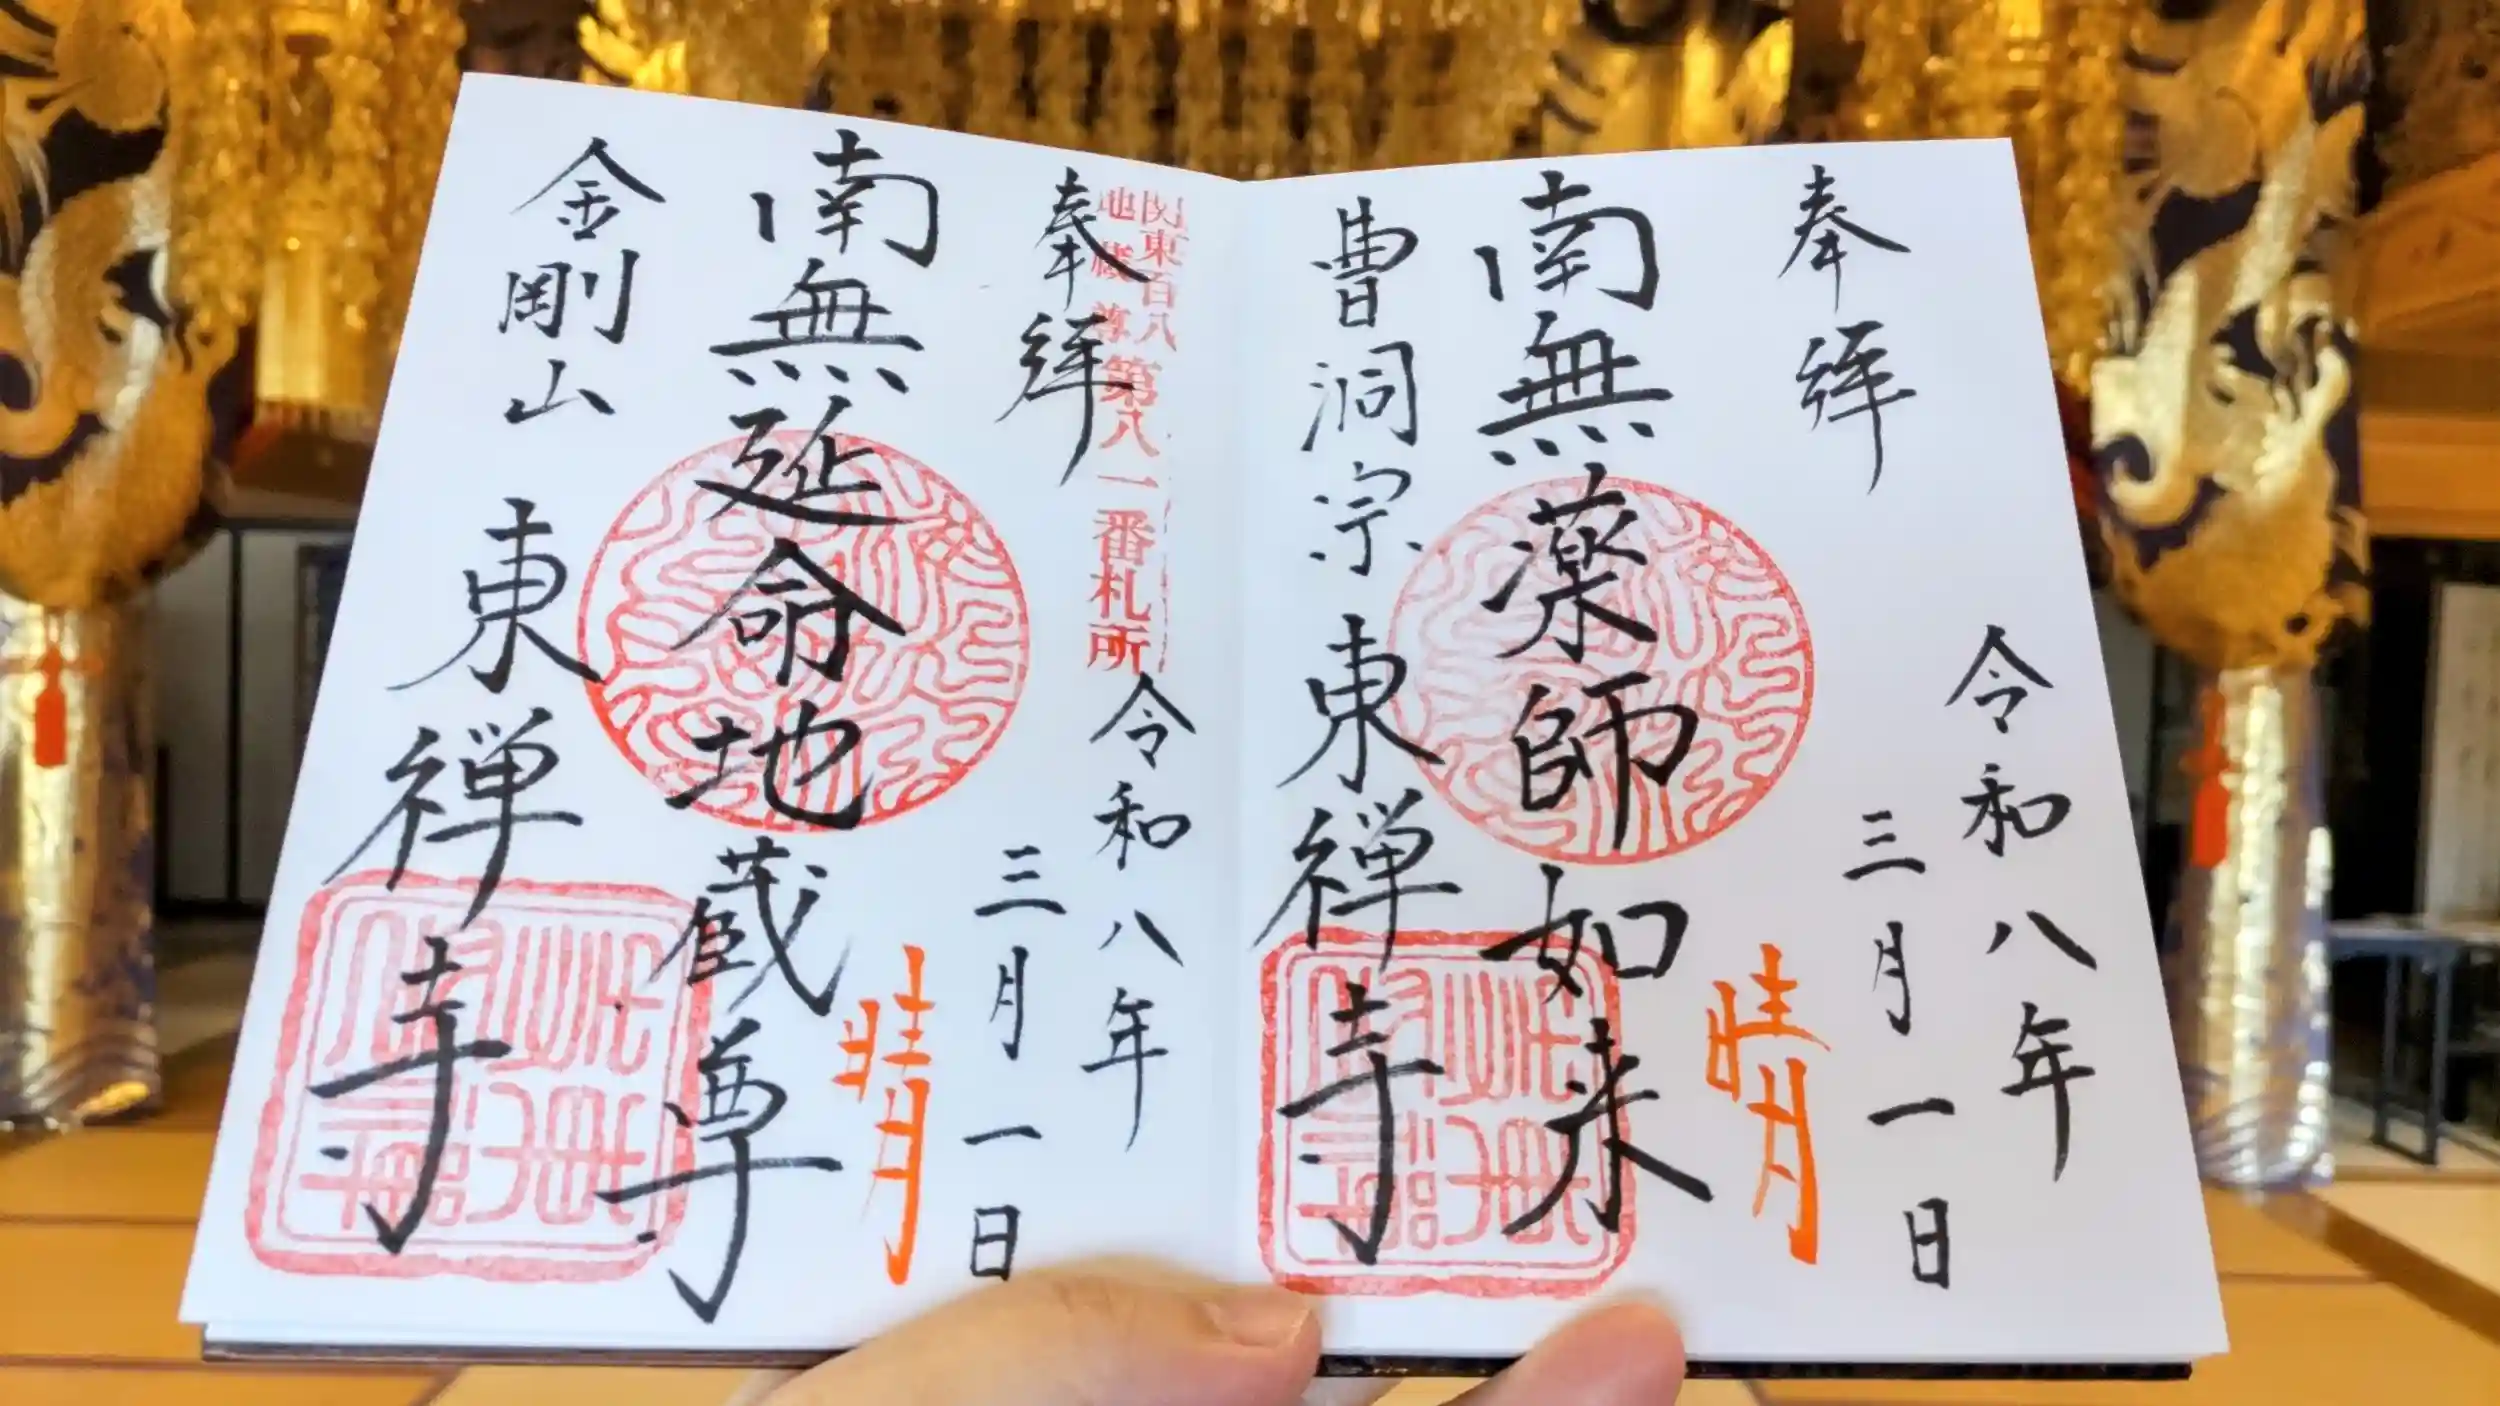 奉拝
令和八年
三月一日
晴
南無薬師如来
曹洞宗 東禅寺
奉拝
関東百八
地蔵尊
第八一番札所
令和八年
三月一日
晴
南無延命地蔵尊
金剛山 東禅寺